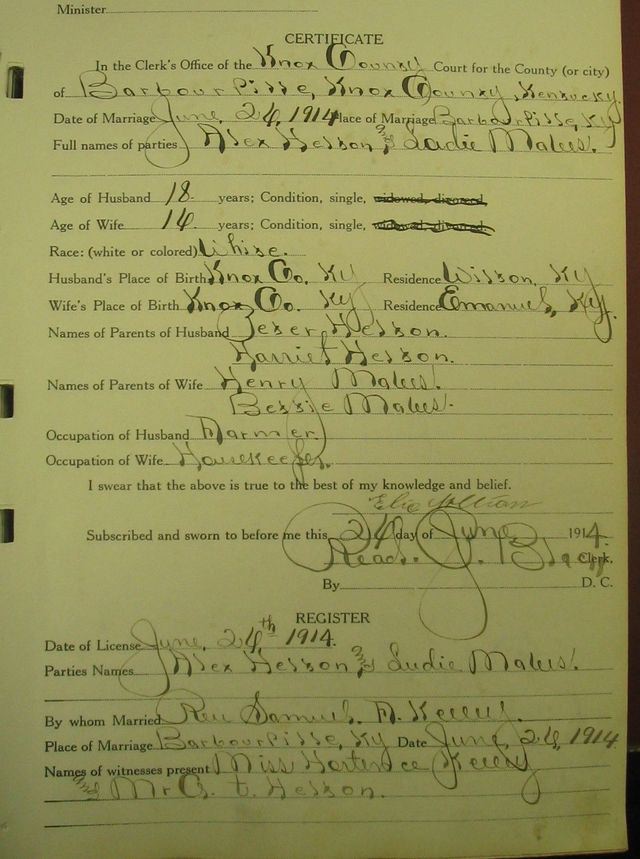 Minister
CERTIFICATE
In the Clerk's Office of the Knox County Court for the County (or city)
of Barbourville, Knox County, Kentucky.
Date of Marriage June, 24, 1914 Place of Marriage Barbourville, Ky
Full names of parties Alex Hesson, and Sadie
Age of Husband 18 years; Condition, single, widowed, divorced
Age of Wife years; Condition, single, widowed, divorced
Race: (white or colored) White.
Husband's Place of Birth Knox Co. Ky Residence Wilson, Ky
Wife's Place of Birth Knox Co. Ky Residence Emanuel, Ky.
Names of Parents of Husband Hesson.
Harriet Hesson.
Names of Parents of Wife Henry
Bessie
Occupation of Husband Farmer.
Occupation of Wife Housekeeper.
I swear that the above is true to the best of my knowledge and belief.
Subscribed and sworn to before me this 24 day of June 1914.
Read. J. Black Clerk.
By D. C.
REGISTER
Date of License June, 24th 1914.
Parties Names Alex Hesson, and
By whom Married Rev Samuel. A. Kelley.
Place of Marriage Barbourville, Ky Date June, 24, 1914
Names of witnesses present Miss Hortence Kelley
and Mr G. t. Hesson.